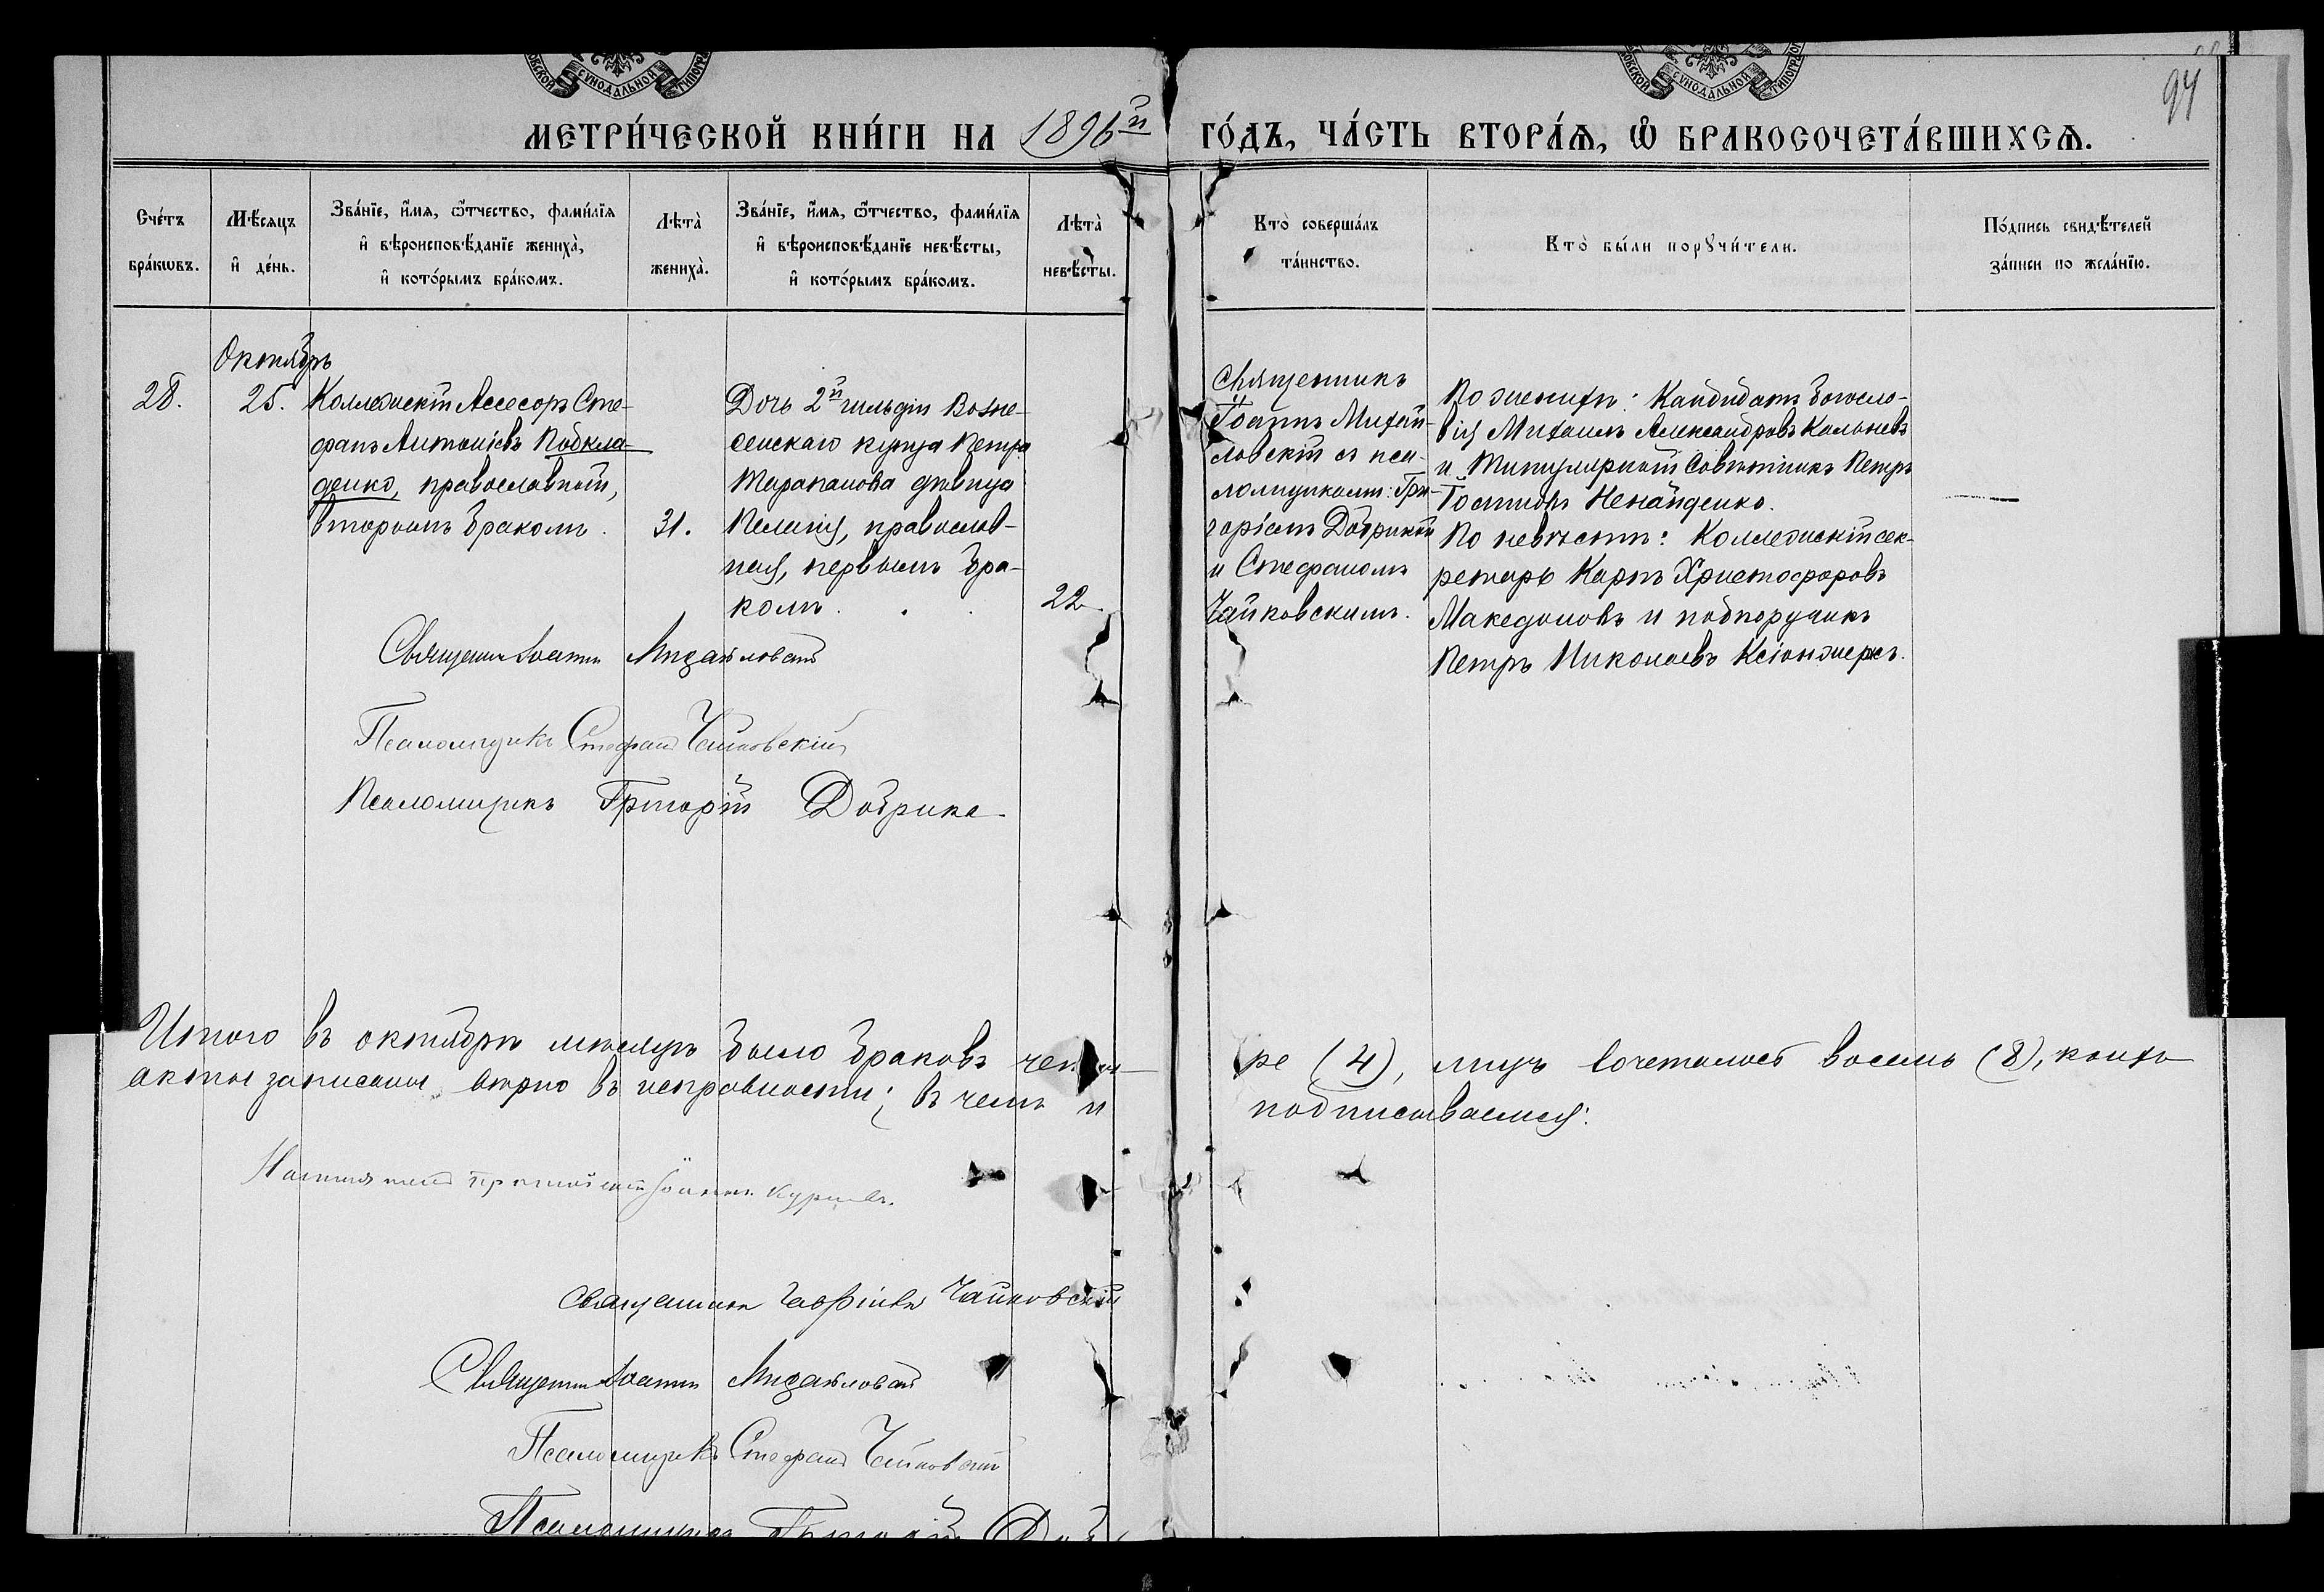 94
МЕТРИ́ЧЕСКОЙ КНИ́ГИ НА 1896й ГО́ДЪ, ЧА́СТЬ ВТОРА́Ѧ, Ѽ БРАКОСОЧЕТА́ВШИХСѦ.
Сче́тъ бра́кѡвъ.
Мѣ́сяцъ и҆ де́нь.
Зва́нїе, и҆́мѧ, ѻ҆́тчество, фами́лїѧ
и҆ вѣроисповѣ́данїе жениха̀,
и҆ кото́рымъ бра́комъ.
Лѣта̀ жениха̀.
Зва́нїе, и҆́мѧ, ѻ҆́тчество, фами́лїѧ
и҆ вѣроисповѣ́данїе невѣ́сты,
и҆ кото́рымъ бра́комъ.
Лѣта̀ невѣ́сты.
Кто̀ соверша́лъ
та́инство.
Кто̀ бы́ли порꙋчи́тели.
По́дпись свидѣ́телей
за́писи по жела́нїю.
28.
Октябрь
25.
Коллежскій Ассесоръ Сте-
фанъ Антоніевъ Подкла-
денко, православный,
вторымъ бракомъ.
31.
Дочь 2й гильдіи Возне-
сенскаго купца Петра
Тарапанова дѣвица
Пелагія, православ-
ная, первымъ бра-
комъ.
22.
Священникъ
Іоаннъ Михай-
ловскій съ пса-
ломщиками: Гри-
горіемъ Добрикой
и Стефаномъ
Чайковскимъ.
По женихѣ: Кандидатъ бого­сло-
вія Михаилъ Александровъ Кальневъ
и Титулярный Совѣтникъ Петръ
Іоанновъ Ненайденко.
По невѣстѣ: Коллежскій сек-
ретарь Карпъ Христофоровъ
Македоновъ и подпоручикъ
Петръ Николаевъ Ксіонжекъ.
Священникъ Іоаннъ Михайловскій
Псаломщикъ Стефанъ Чайковскій
Псаломщикъ Григорій Добрика
Итого въ октябрѣ мѣсяцѣ было браковъ четы-ре (4), лицъ сочеталось восемь (8), коихъ
акты записаны вѣрно въ исправности; въ чемъ и подписываемся:
Настоятель протоіерей Іоаннъ
Священникъ Гавріилъ Чайковскій
Священникъ Іоаннъ Михайловскій
Псаломщикъ Стефанъ Чайковскій
Псаломщикъ Григорій